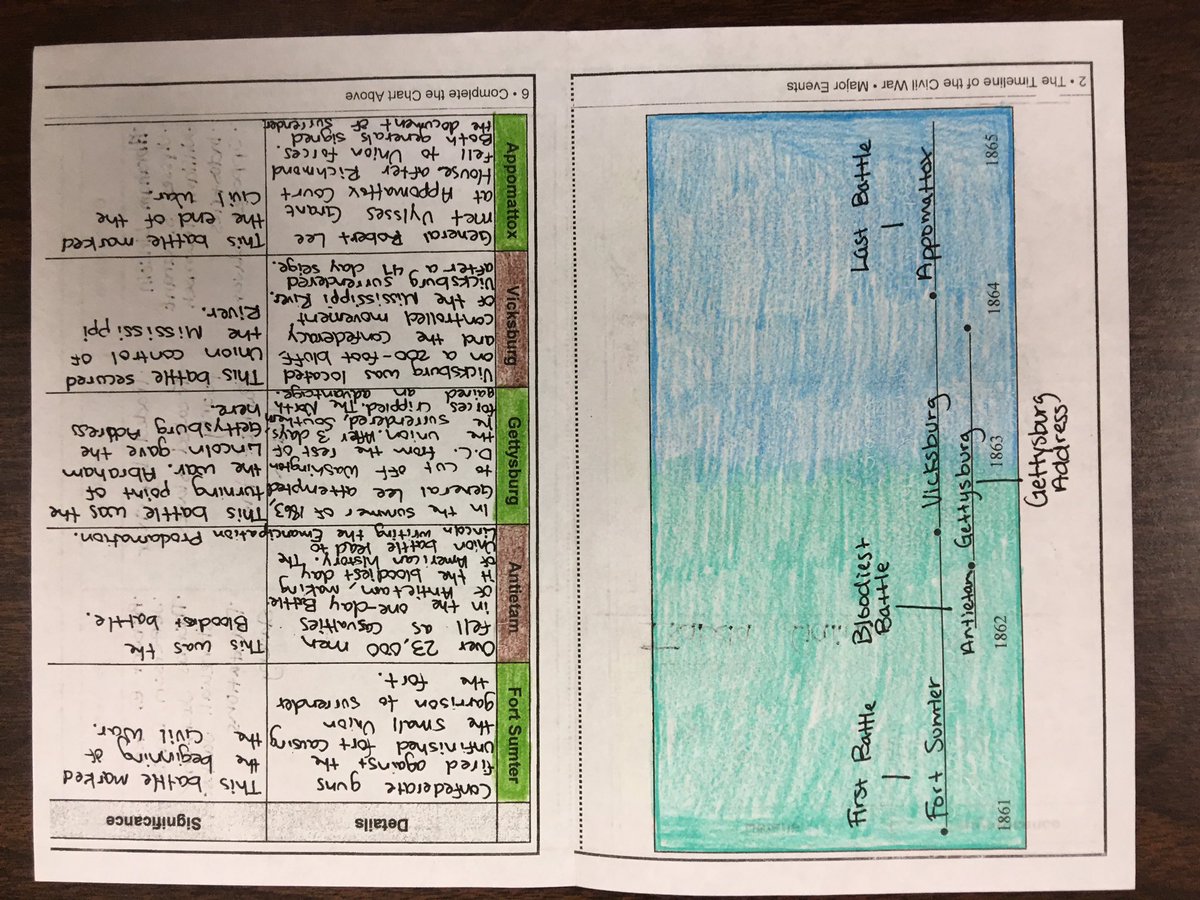 2 • The Timeline of the Civil War • Major Events
First Battle
Bloodiest
Battle
Last Battle
Fort Sumter
Vicksburg
Appomattox
Antietam
Gettysburg
1861
1862
1863
1864
1865
Gettysburg
Address
6 • Complete the Chart Above
Details
Significance
Fort Sumter
Confederate guns
fired against the
unfinished fort causing
the small Union
garrison to surrender
the fort.
This battle marked
the beginning of
the Civil War.
Antietam
Over 23,000 men
fell as casualties
in the one-day Battle
of Antietam, making
it the bloodiest day
of American history. The
Union battle lead to
Lincoln writing the Emancipation Proclamation.
This was the
Bloodiest battle.
Gettysburg
In the summer of 1863,
General Lee attempted
to cut off Washington
D.C. from the rest of
the Union. After 3 days,
he surrendered, Southern
forces crippled. The North
gained an advantage.
This battle was the
turning point of
the war. Abraham
Lincoln gave the
Gettysburg Address
here.
Vicksburg
Vicksburg was located
on a 200-foot bluff
and the confederacy
controlled movement
of the Mississippi River.
Vicksburg surrendered
after a 47 day seige.
This battle secured
Union control of
the Mississippi
River.
Appomattox
General Robert Lee
met Ulysses Grant
at Appomattox Court
House after Richmond
fell to Union forces.
Both generals signed
the document of surrender
This battle marked
the end of the
Civil War